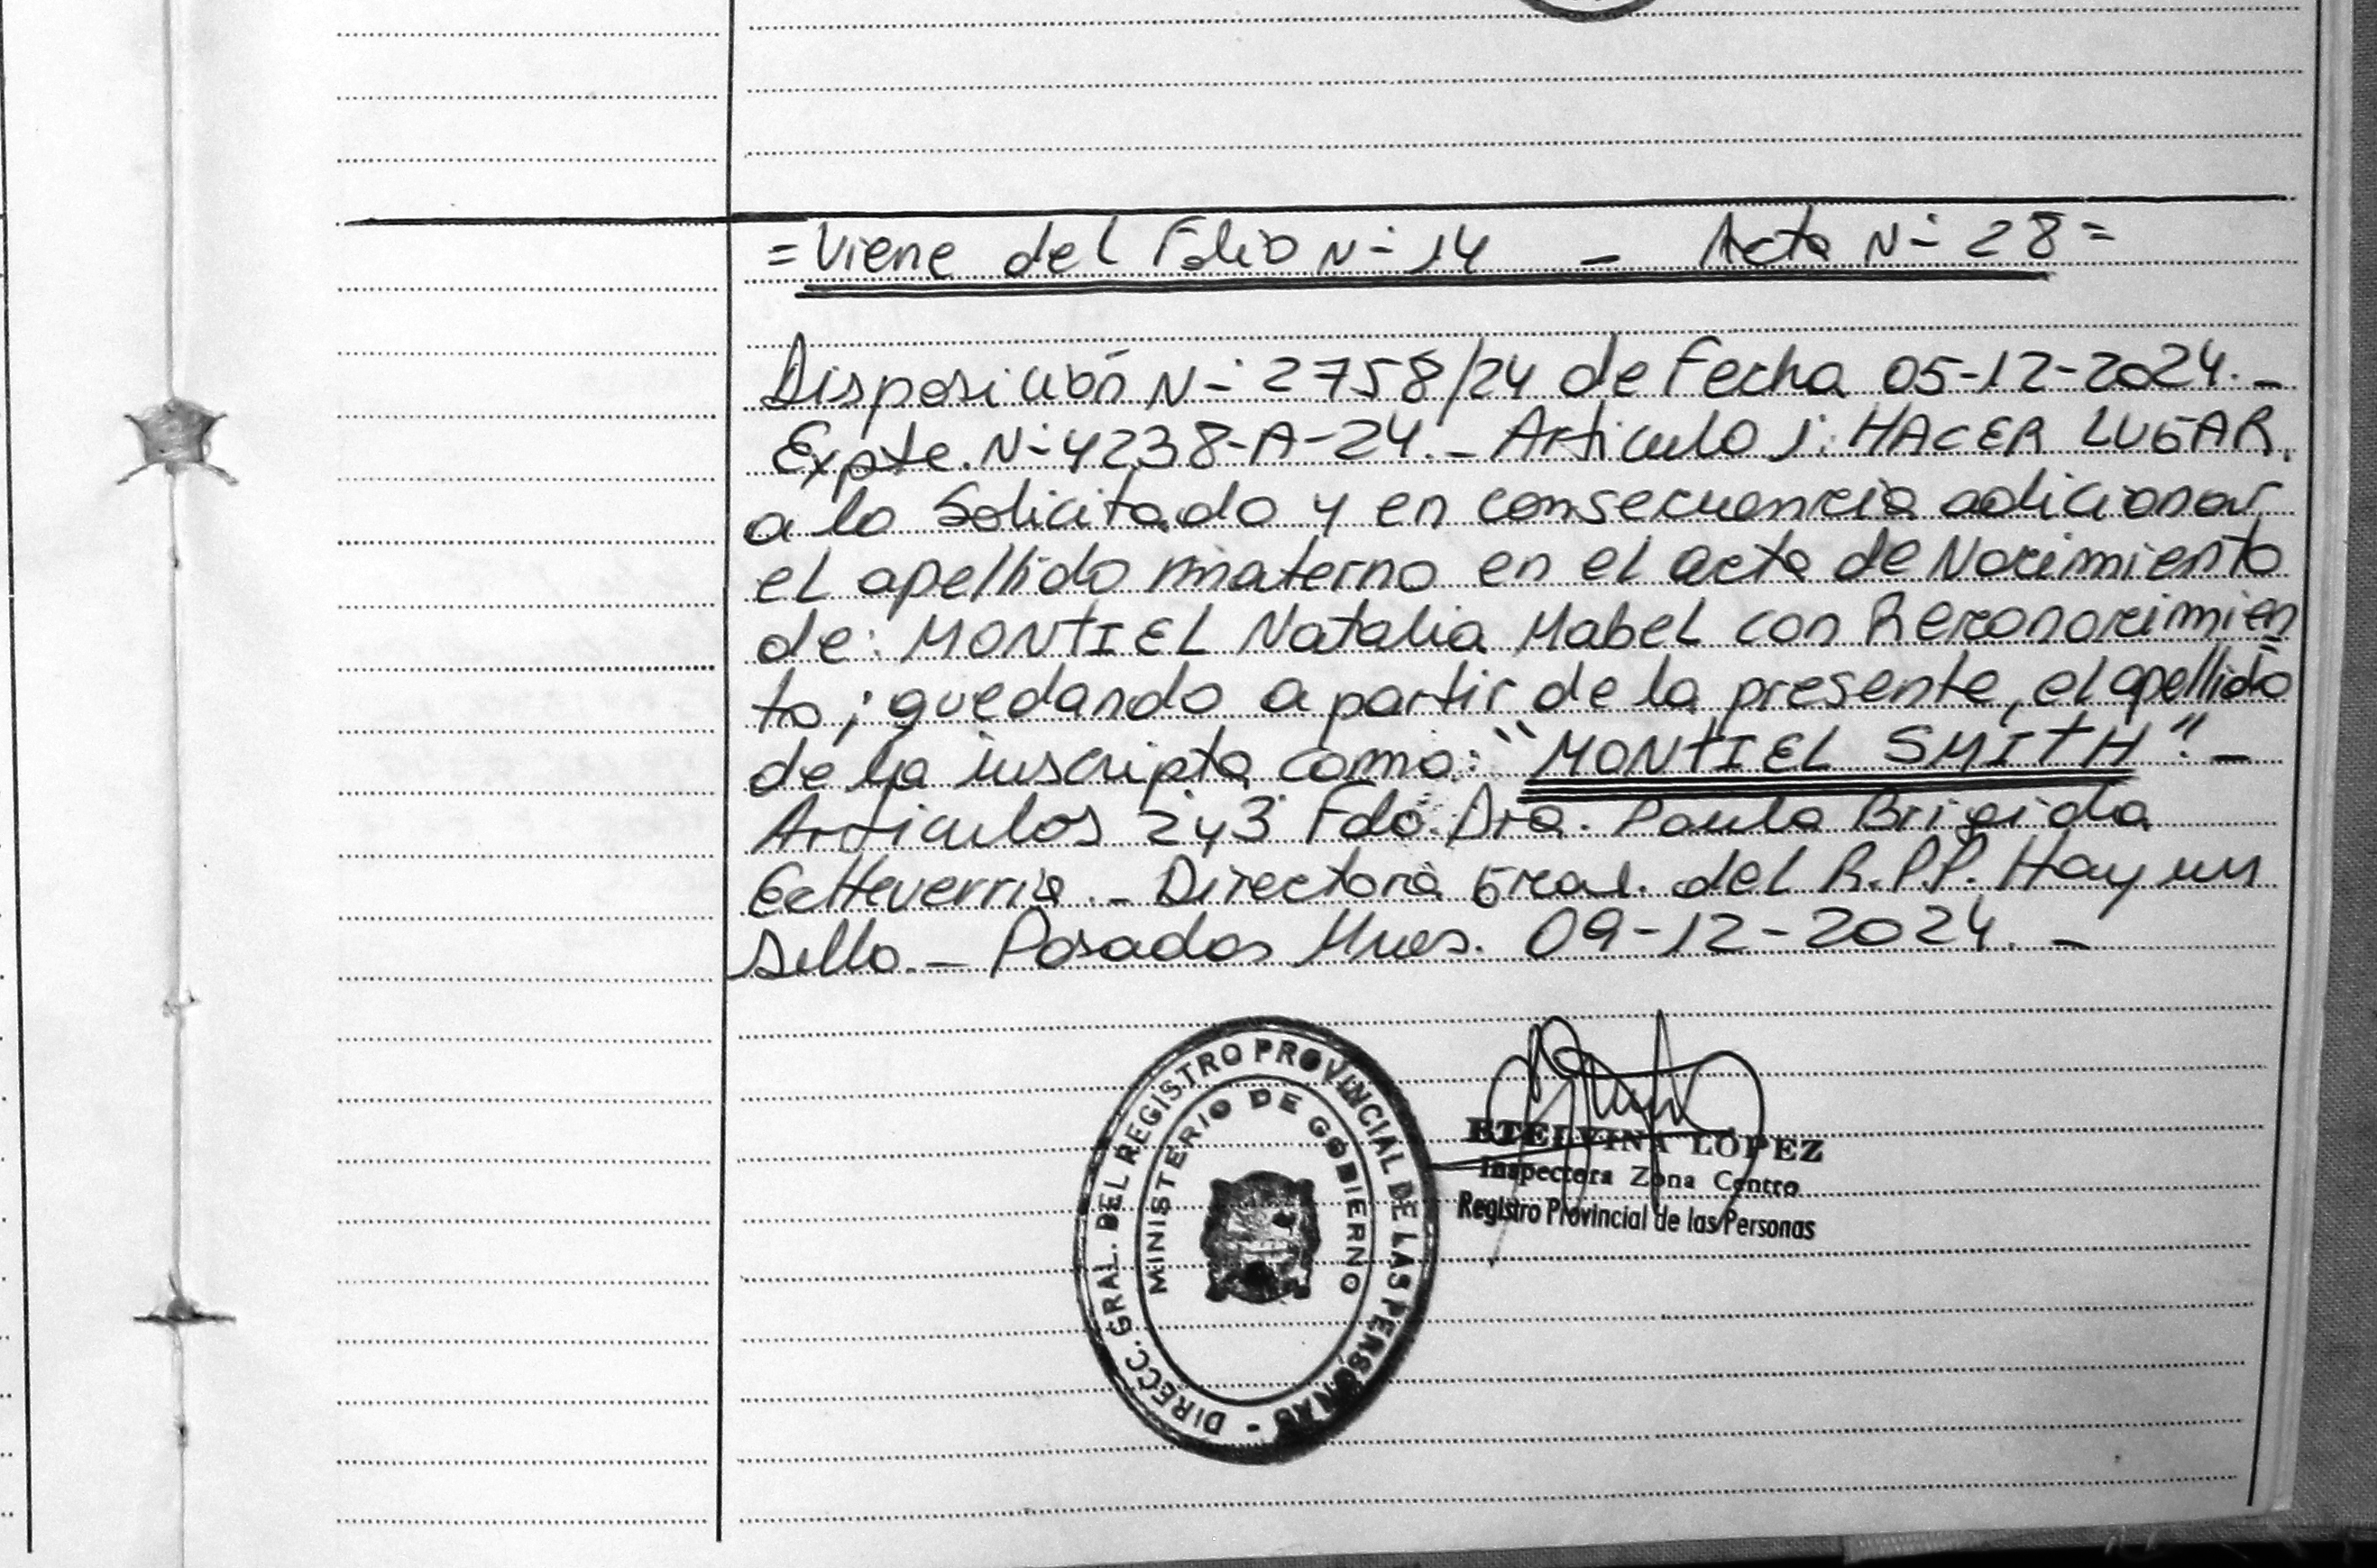 =Viene del Folio N-º 14 - Acta N-º 28=
Disposición N-º 2758/24 de Fecha 05-12-2024.-
Expte. N-º 4238-A-24.- Articulo 1º: HACER LUGAR
a lo Solicitado y en consecuencia adicionar
el apellido materno en el acta de Nacimiento
de: MONTIEL Natalia Mabel con Reconocimien
to; quedando a partir de la presente, el apellido
de la inscripta como: "MONTIEL SMITH".-
Articulos 2º y 3º Fdo. Dra. Paula Brigida
Echeverria.- Directora Gral. del R.P.P. Hay un
Sello.- Posadas Mnes. 09-12-2024.-
DIRECC. GRAL. DEL REGISTRO PROVINCIAL DE LAS PERSONAS -
MINISTERIO DE GOBIERNO
ETELVINA LOPEZ
Inspectora Zona Centro
Registro Provincial de las Personas